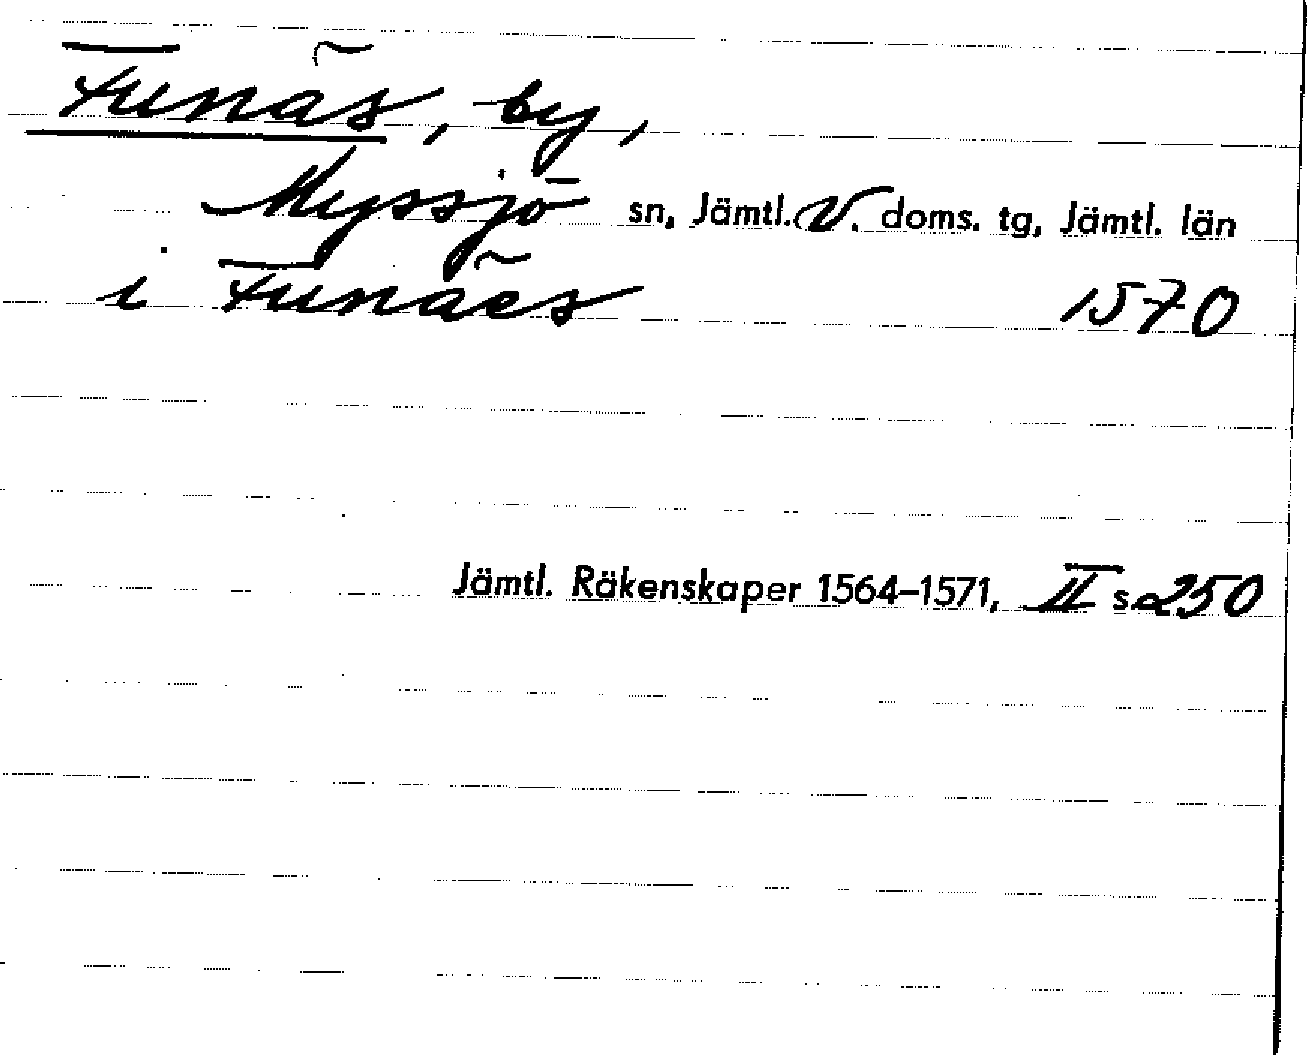 Funäs, by,
Myssjö sn, Jämtl. V. doms. tg, Jämtl. län
i Funäes 1570
Jämtl. Räkenskaper 1564–1571, II s 250